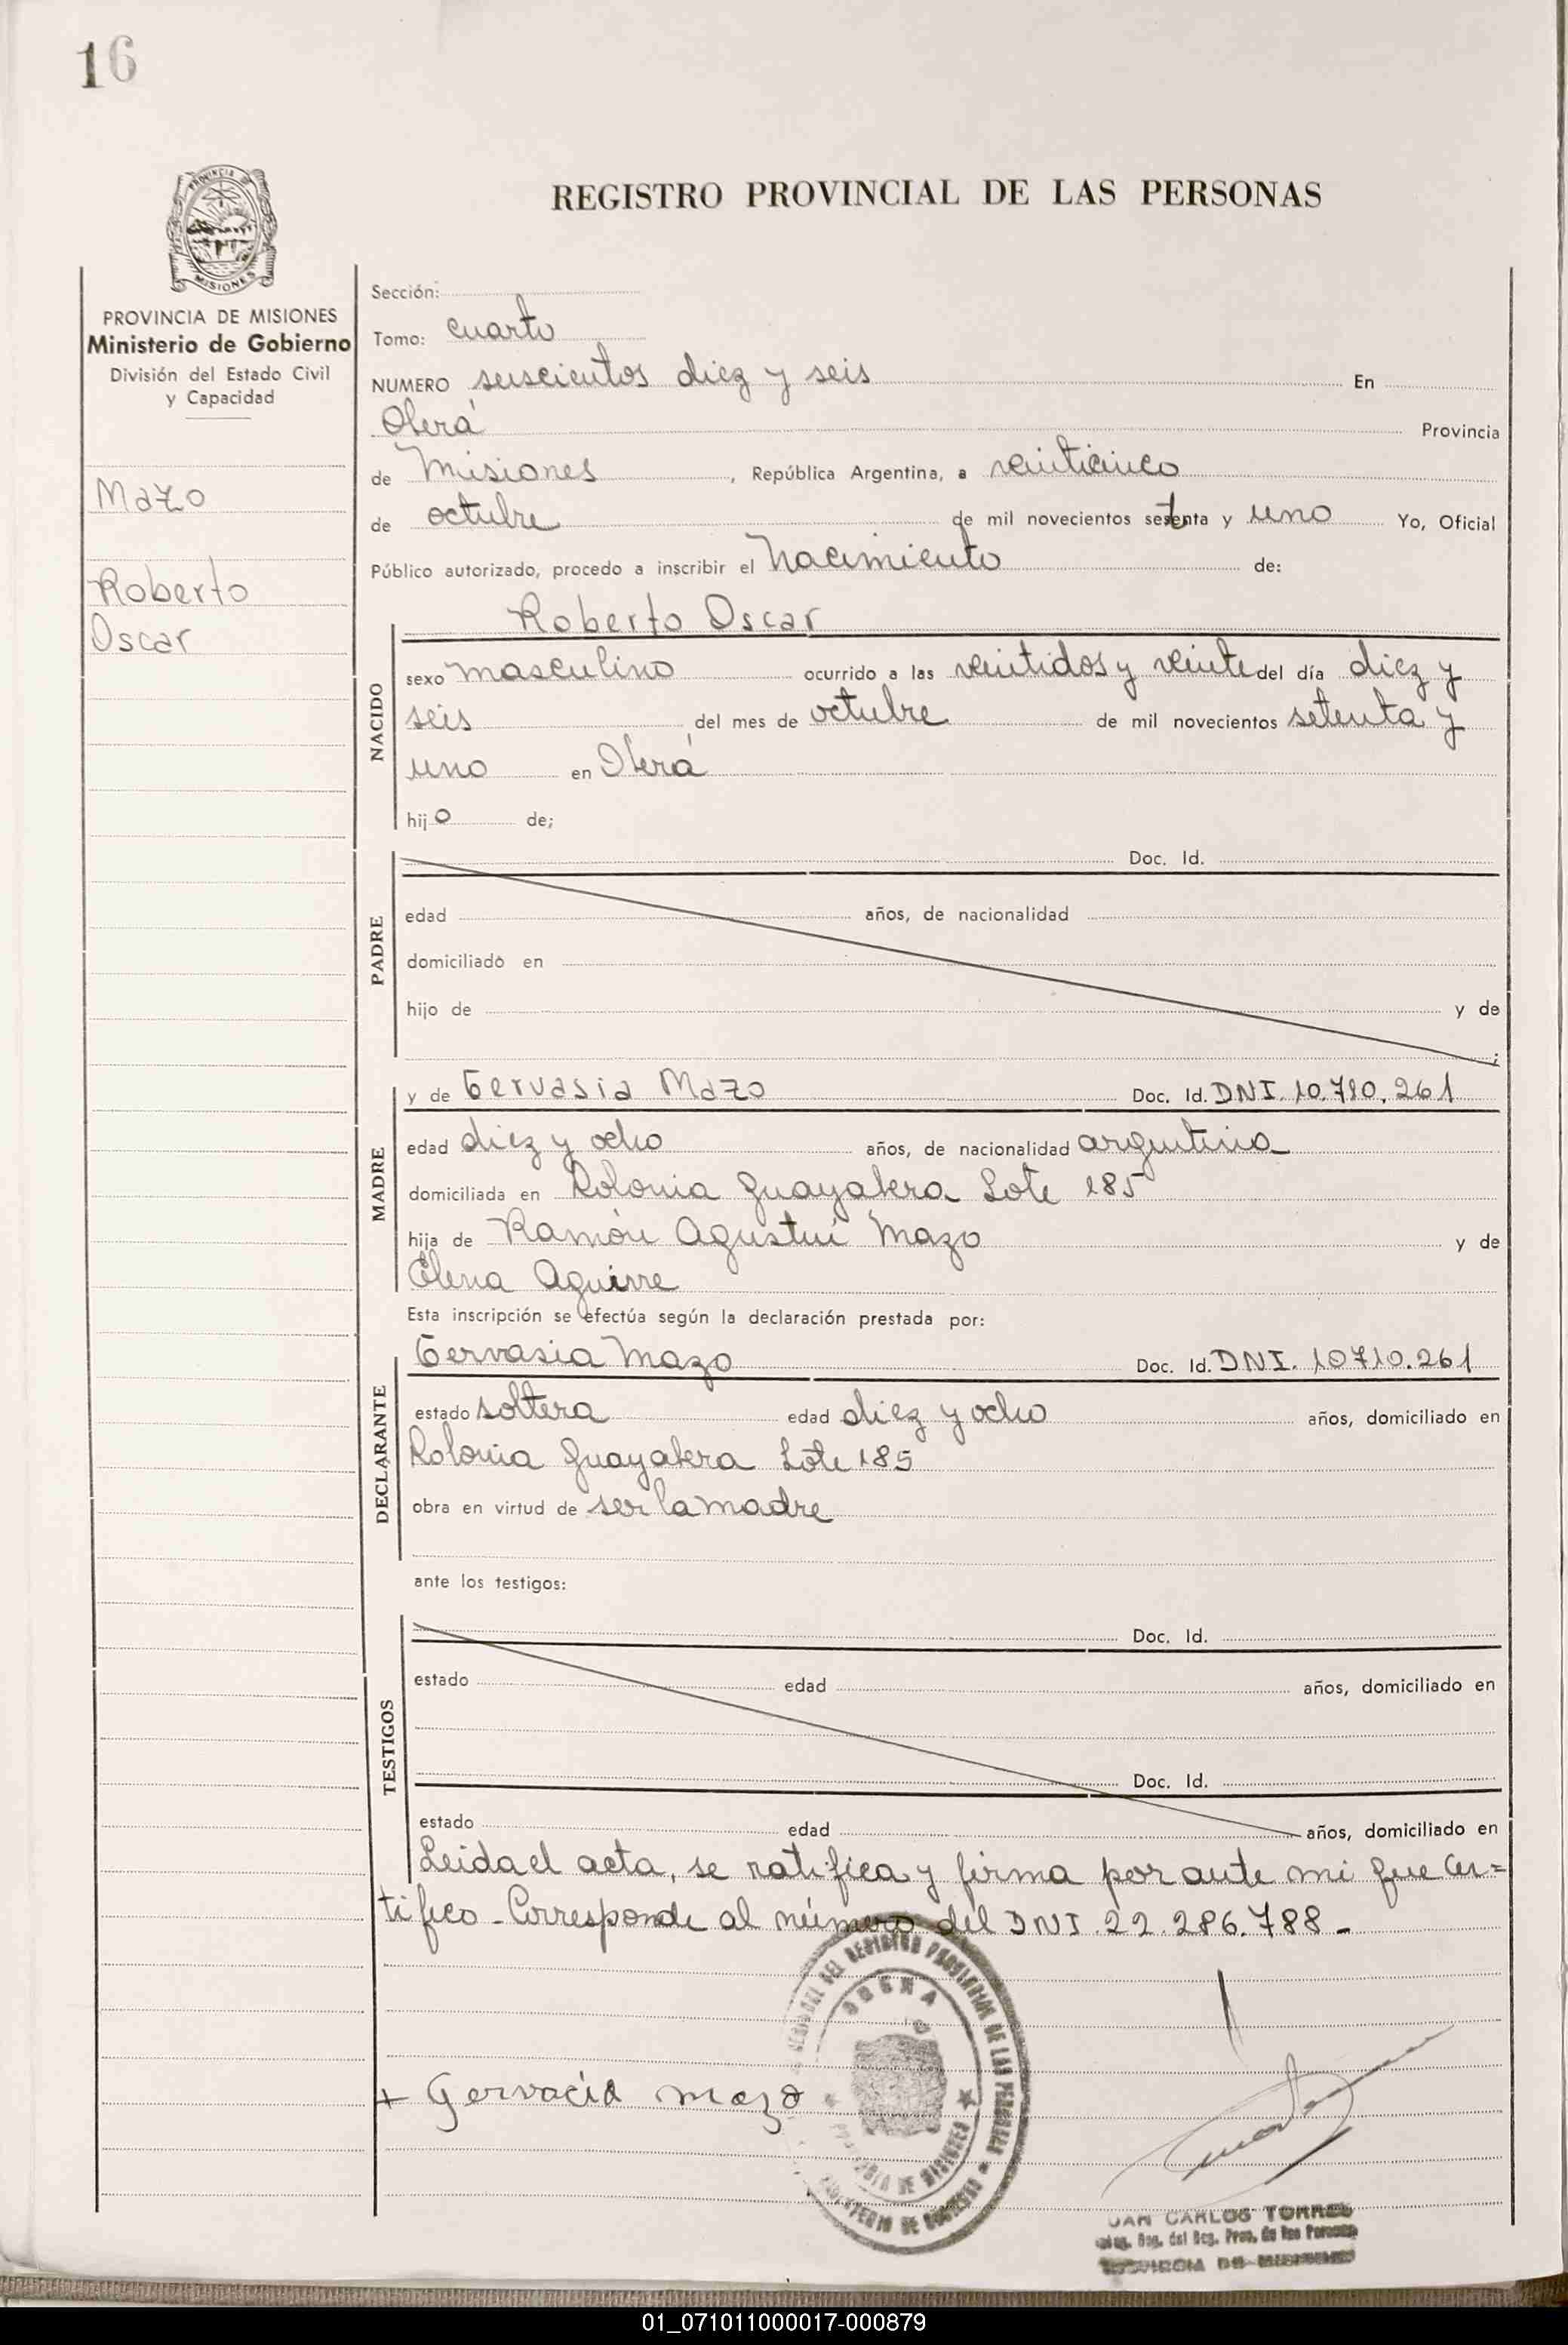 16
REGISTRO PROVINCIAL DE LAS PERSONAS
PROVINCIA DE MISIONES
Ministerio de Gobierno
División del Estado Civil
y Capacidad
Mazo
Roberto
Oscar
Sección:
Tomo: cuarto
NUMERO seiscientos diez y seis En
Oberá Provincia
de Misiones, República Argentina, a veinticinco
de octubre de mil novecientos setenta y uno Yo, Oficial
Público autorizado, procedo a inscribir el Nacimiento de:
NACIDO
Roberto Oscar
sexo masculino ocurrido a las veintidos y veinte del día diez y
seis del mes de octubre de mil novecientos setenta y
uno en Oberá
hijo de;
PADRE
Doc. Id.
edad años, de nacionalidad
domiciliado en
hijo de y de
;
MADRE
y de Gervasia Mazo Doc. Id. DNI. 10.710.261
edad diez y ocho años, de nacionalidad argentina
domiciliada en Kolonia Guayabera Lote 185
hija de Ramón Agustín Mazo y de
Elena Aguirre
Esta inscripción se efectúa según la declaración prestada por:
DECLARANTE
Gervasia Mazo Doc. Id. DNI. 10710.261
estado soltera edad diez y ocho años, domiciliado en
Kolonia Guayabera Lote 185
obra en virtud de ser la madre
ante los testigos:
TESTIGOS
Doc. Id.
estado edad años, domiciliado en
Doc. Id.
estado edad años, domiciliado en
Leida el acta, se ratifica y firma por ante mi que cer=
tifico - Corresponde al número del DNI 22.286.788 -
+ Gervacia mazo
CARLOS TORRES